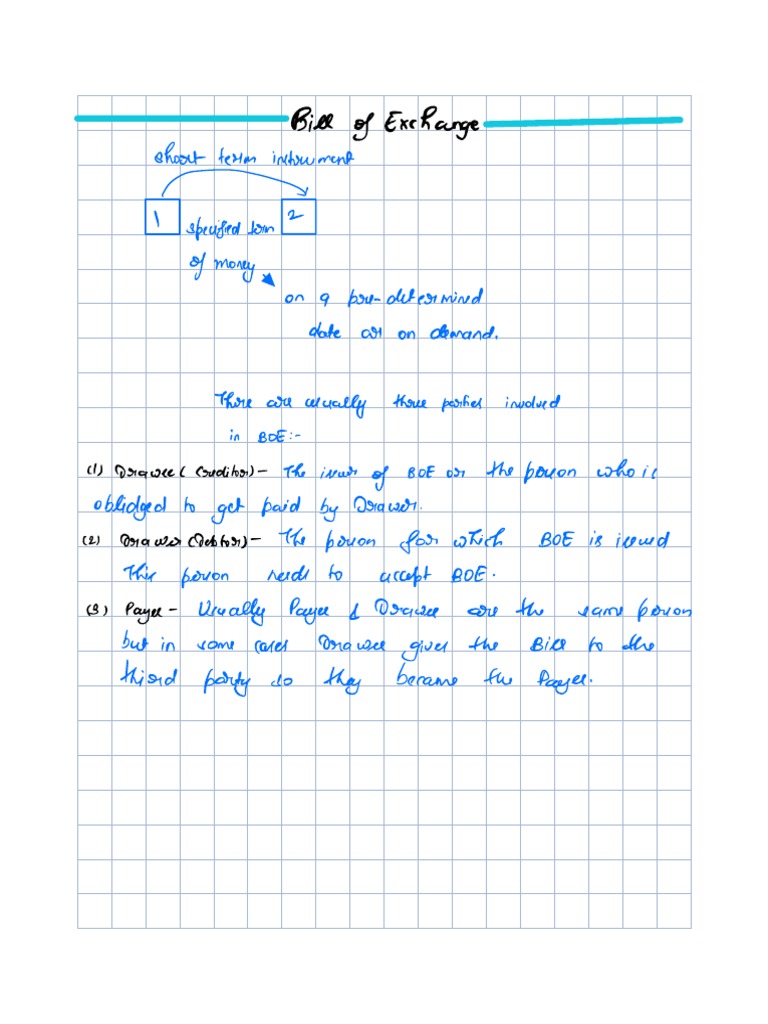 Bill of Exchange
short term instrument
1
2
specified term
of money
on a pre-determined
date or on demand.
There are usually three parties involved
in BOE:-
(1) Drawee (Creditor) - The issuer of BOE or the person who is
oblidged to get paid by Drawer.
(2) Drawer (Debtor) - The person for which BOE is issued
This person needs to accept BOE.
(3) Payee - Usually Payee & Drawee are the same person
but in some cases Drawee gives the Bill to the
third party so they became the Payee.